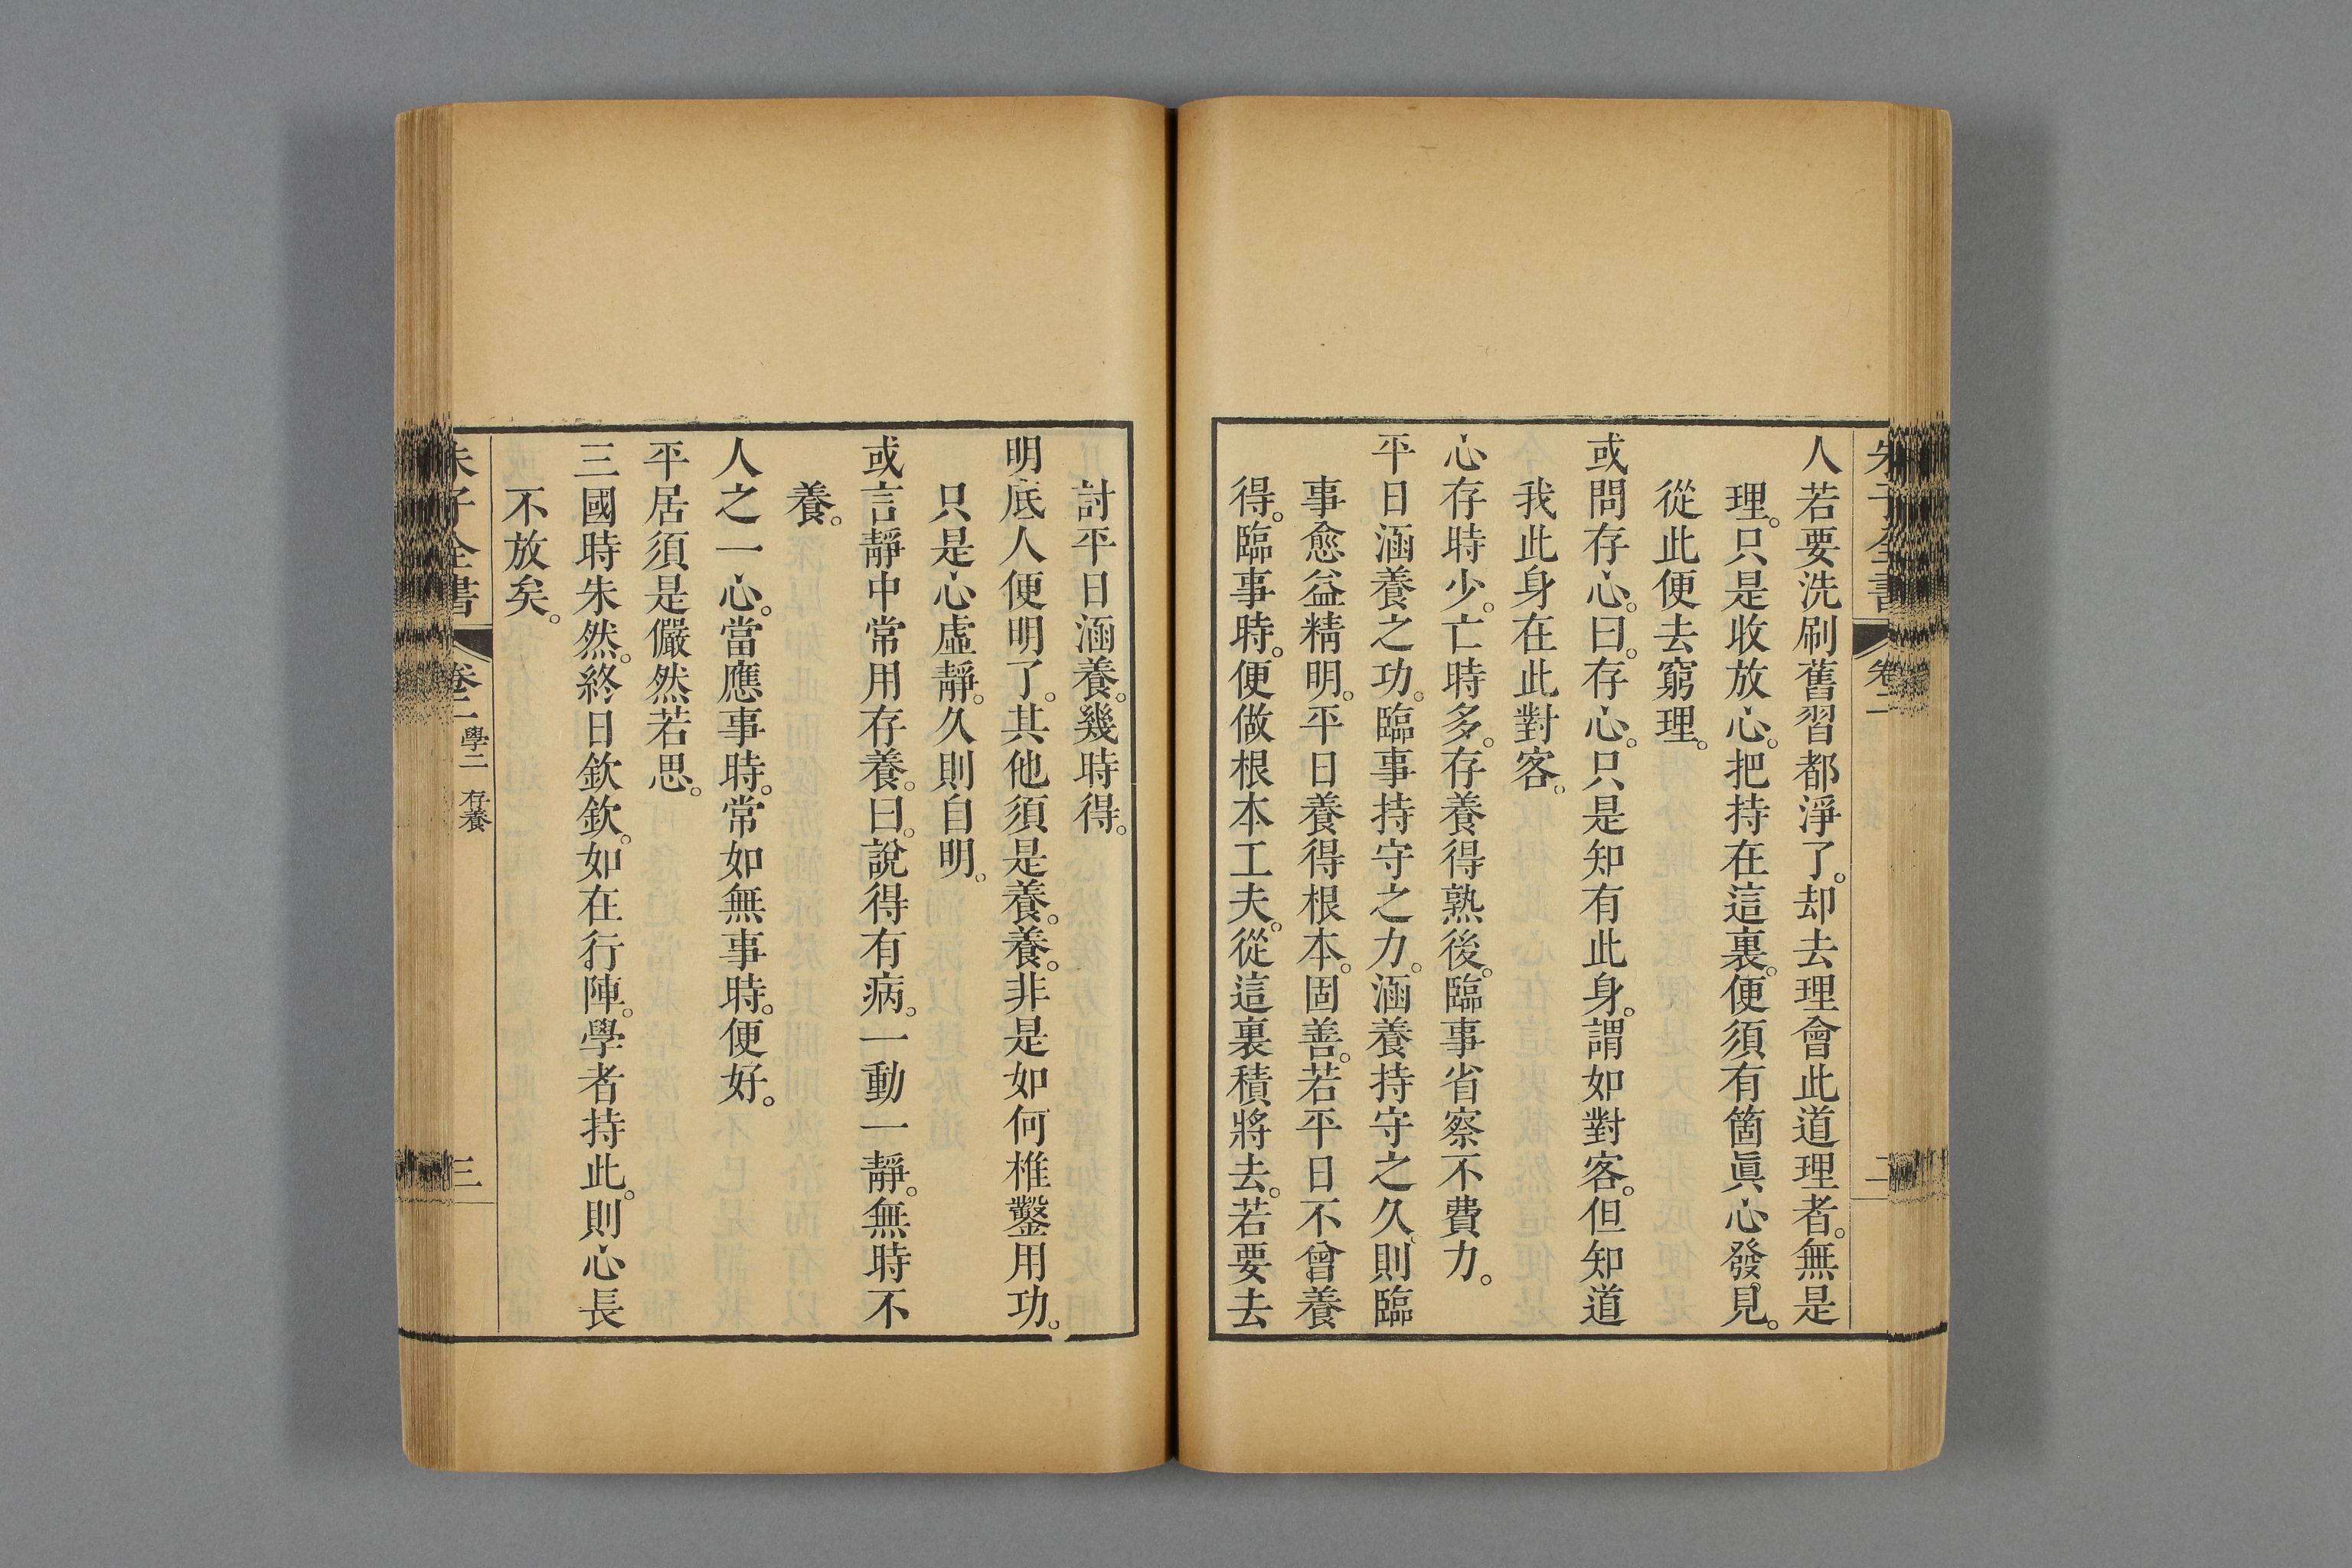 朱子全書 卷二 二
人若要洗刷舊習都淨了。却去理會此道理者。無是
理。只是收放心。把持在這裏。便須有箇眞心發見。
從此便去窮理。
或問存心。曰。存心。只是知有此身。謂如對客。但知道
我此身在此對客。
心存時少。亡時多。存養得熟後。臨事省察不費力。
平日涵養之功。臨事持守之力。涵養持守之久、則臨
事愈益精明。平日養得根本。固善。若平日不曾養
得。臨事時。便做根本工夫。從這裏積將去。若要去
討平日涵養。幾時得。
明底人便明了。其他須是養。養。非是如何椎鑿用功。
只是心虛靜。久則自明。
或言靜中常用存養。曰。說得有病。一動一靜。無時不
養。
人之一心。當應事時。常如無事時。便好。
平居須是儼然若思。
三國時朱然。終日欽欽。如在行陣。學者持此。則心長
不放矣。
朱子全書 卷二 學二 存養 三